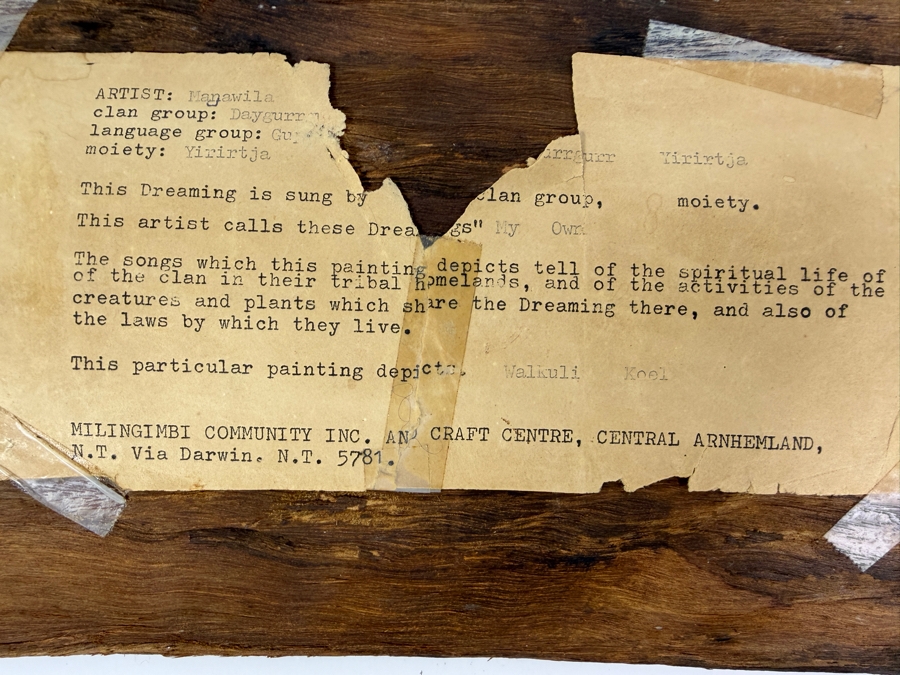 ARTIST: Manawila
clan group: Daygurr
language group: Gu
moiety: Yirirtja
urrgurr Yirirtja
This Dreaming is sung by clan group, moiety.
This artist calls these Drea gs" My Own
The songs which this painting depicts tell of the spiritual life of
of the clan in their tribal homelands, and of the activities of the
creatures and plants which share the Dreaming there, and also of
the laws by which they live.
This particular painting depicts. Walkuli Koel
MILINGIMBI COMMUNITY INC. AND CRAFT CENTRE, CENTRAL ARNHEMLAND,
N.T. Via Darwin. N.T. 5781.